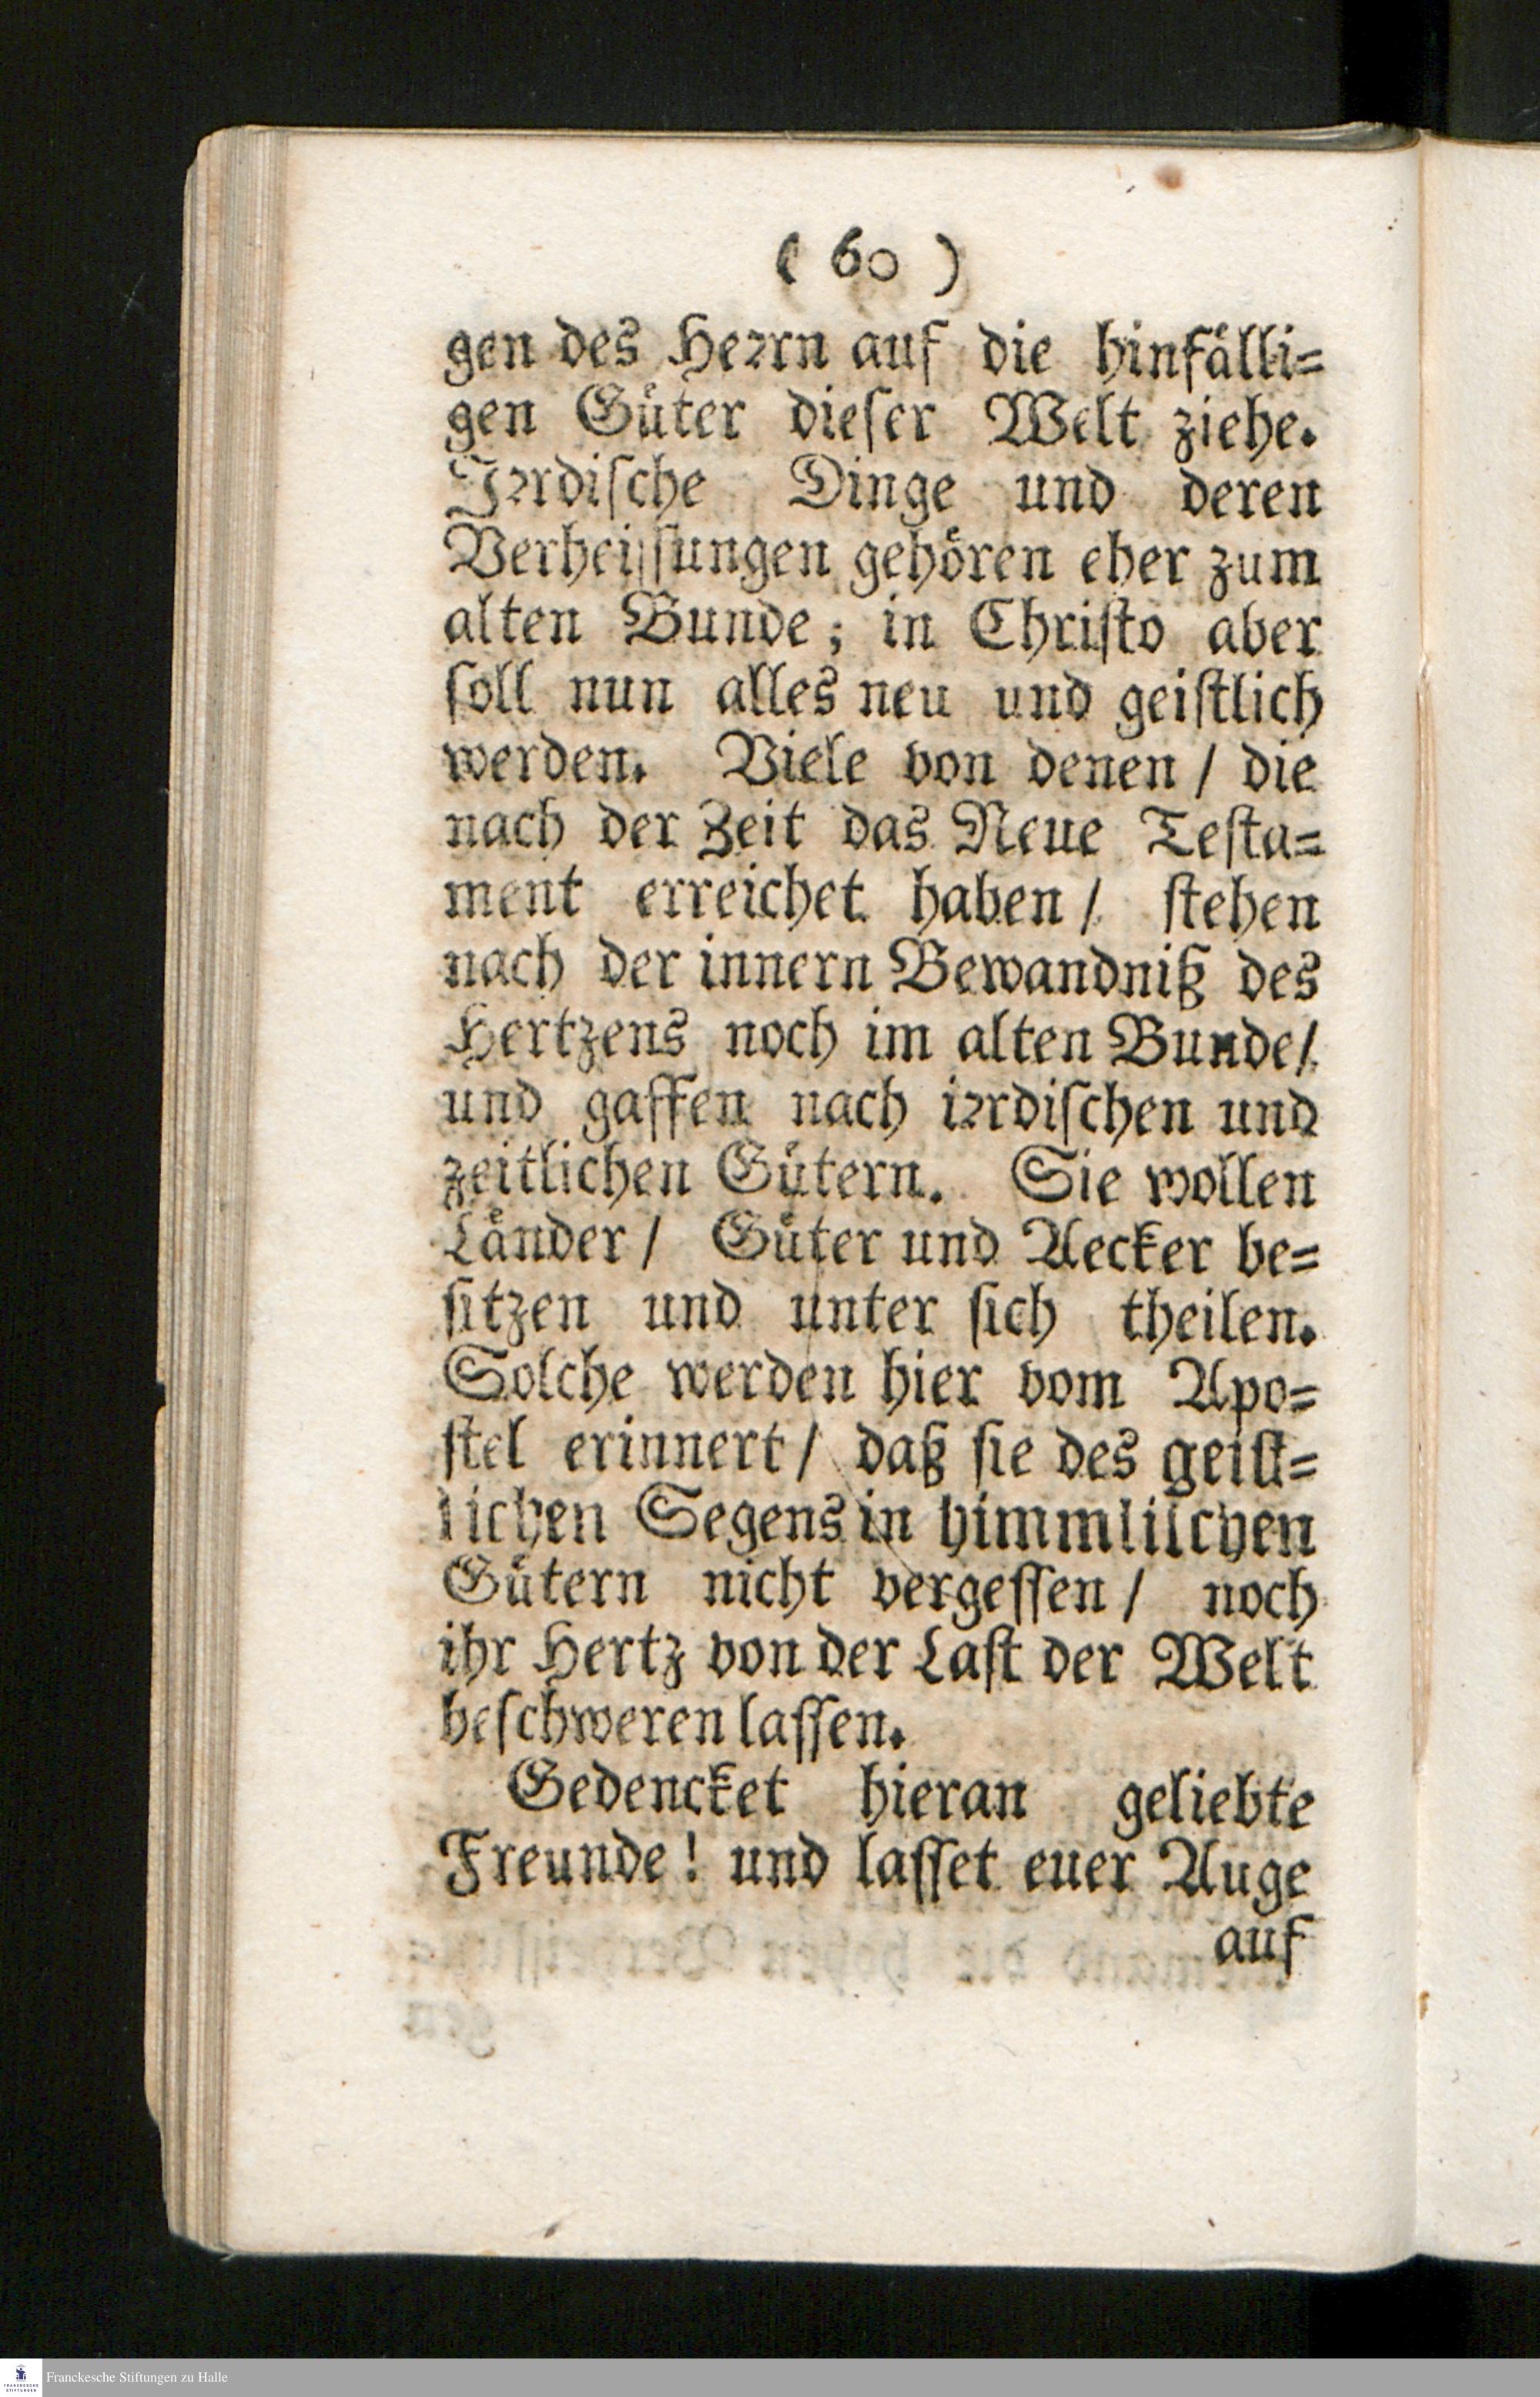 ( 60 )
gen des Heꝛrn auf die hinfaͤlli⸗
gen Guͤter dieſer Welt ziehe.
Jꝛrdiſche Dinge und deren
Verheiſſungen gehoͤren eher zum
alten Bunde; in Chriſto aber
ſoll nun alles neu und geiſtlich
werden. Viele von denen / die
nach der Zeit das Neue Teſta⸗
ment erreichet haben / ſtehen
nach der innern Bewandniß des
Hertzens noch im alten Bunde /
und gaffen nach iꝛrdiſchen und
zeitlichen Guͤtern. Sie wollen
Laͤnder / Guͤter und Aecker be⸗
ſitzen und unter ſich theilen.
Solche werden hier vom Apo⸗
ſtel erinnert / daß ſie des geiſt⸗
lichen Segens in himmliſchen
Guͤtern nicht vergeſſen / noch
ihr Hertz von der Laſt der Welt
beſchweren laſſen.
Gedencket hieran geliebte
Freunde! und laſſet euer Auge
auf
Franckesche Stiftungen zu Halle